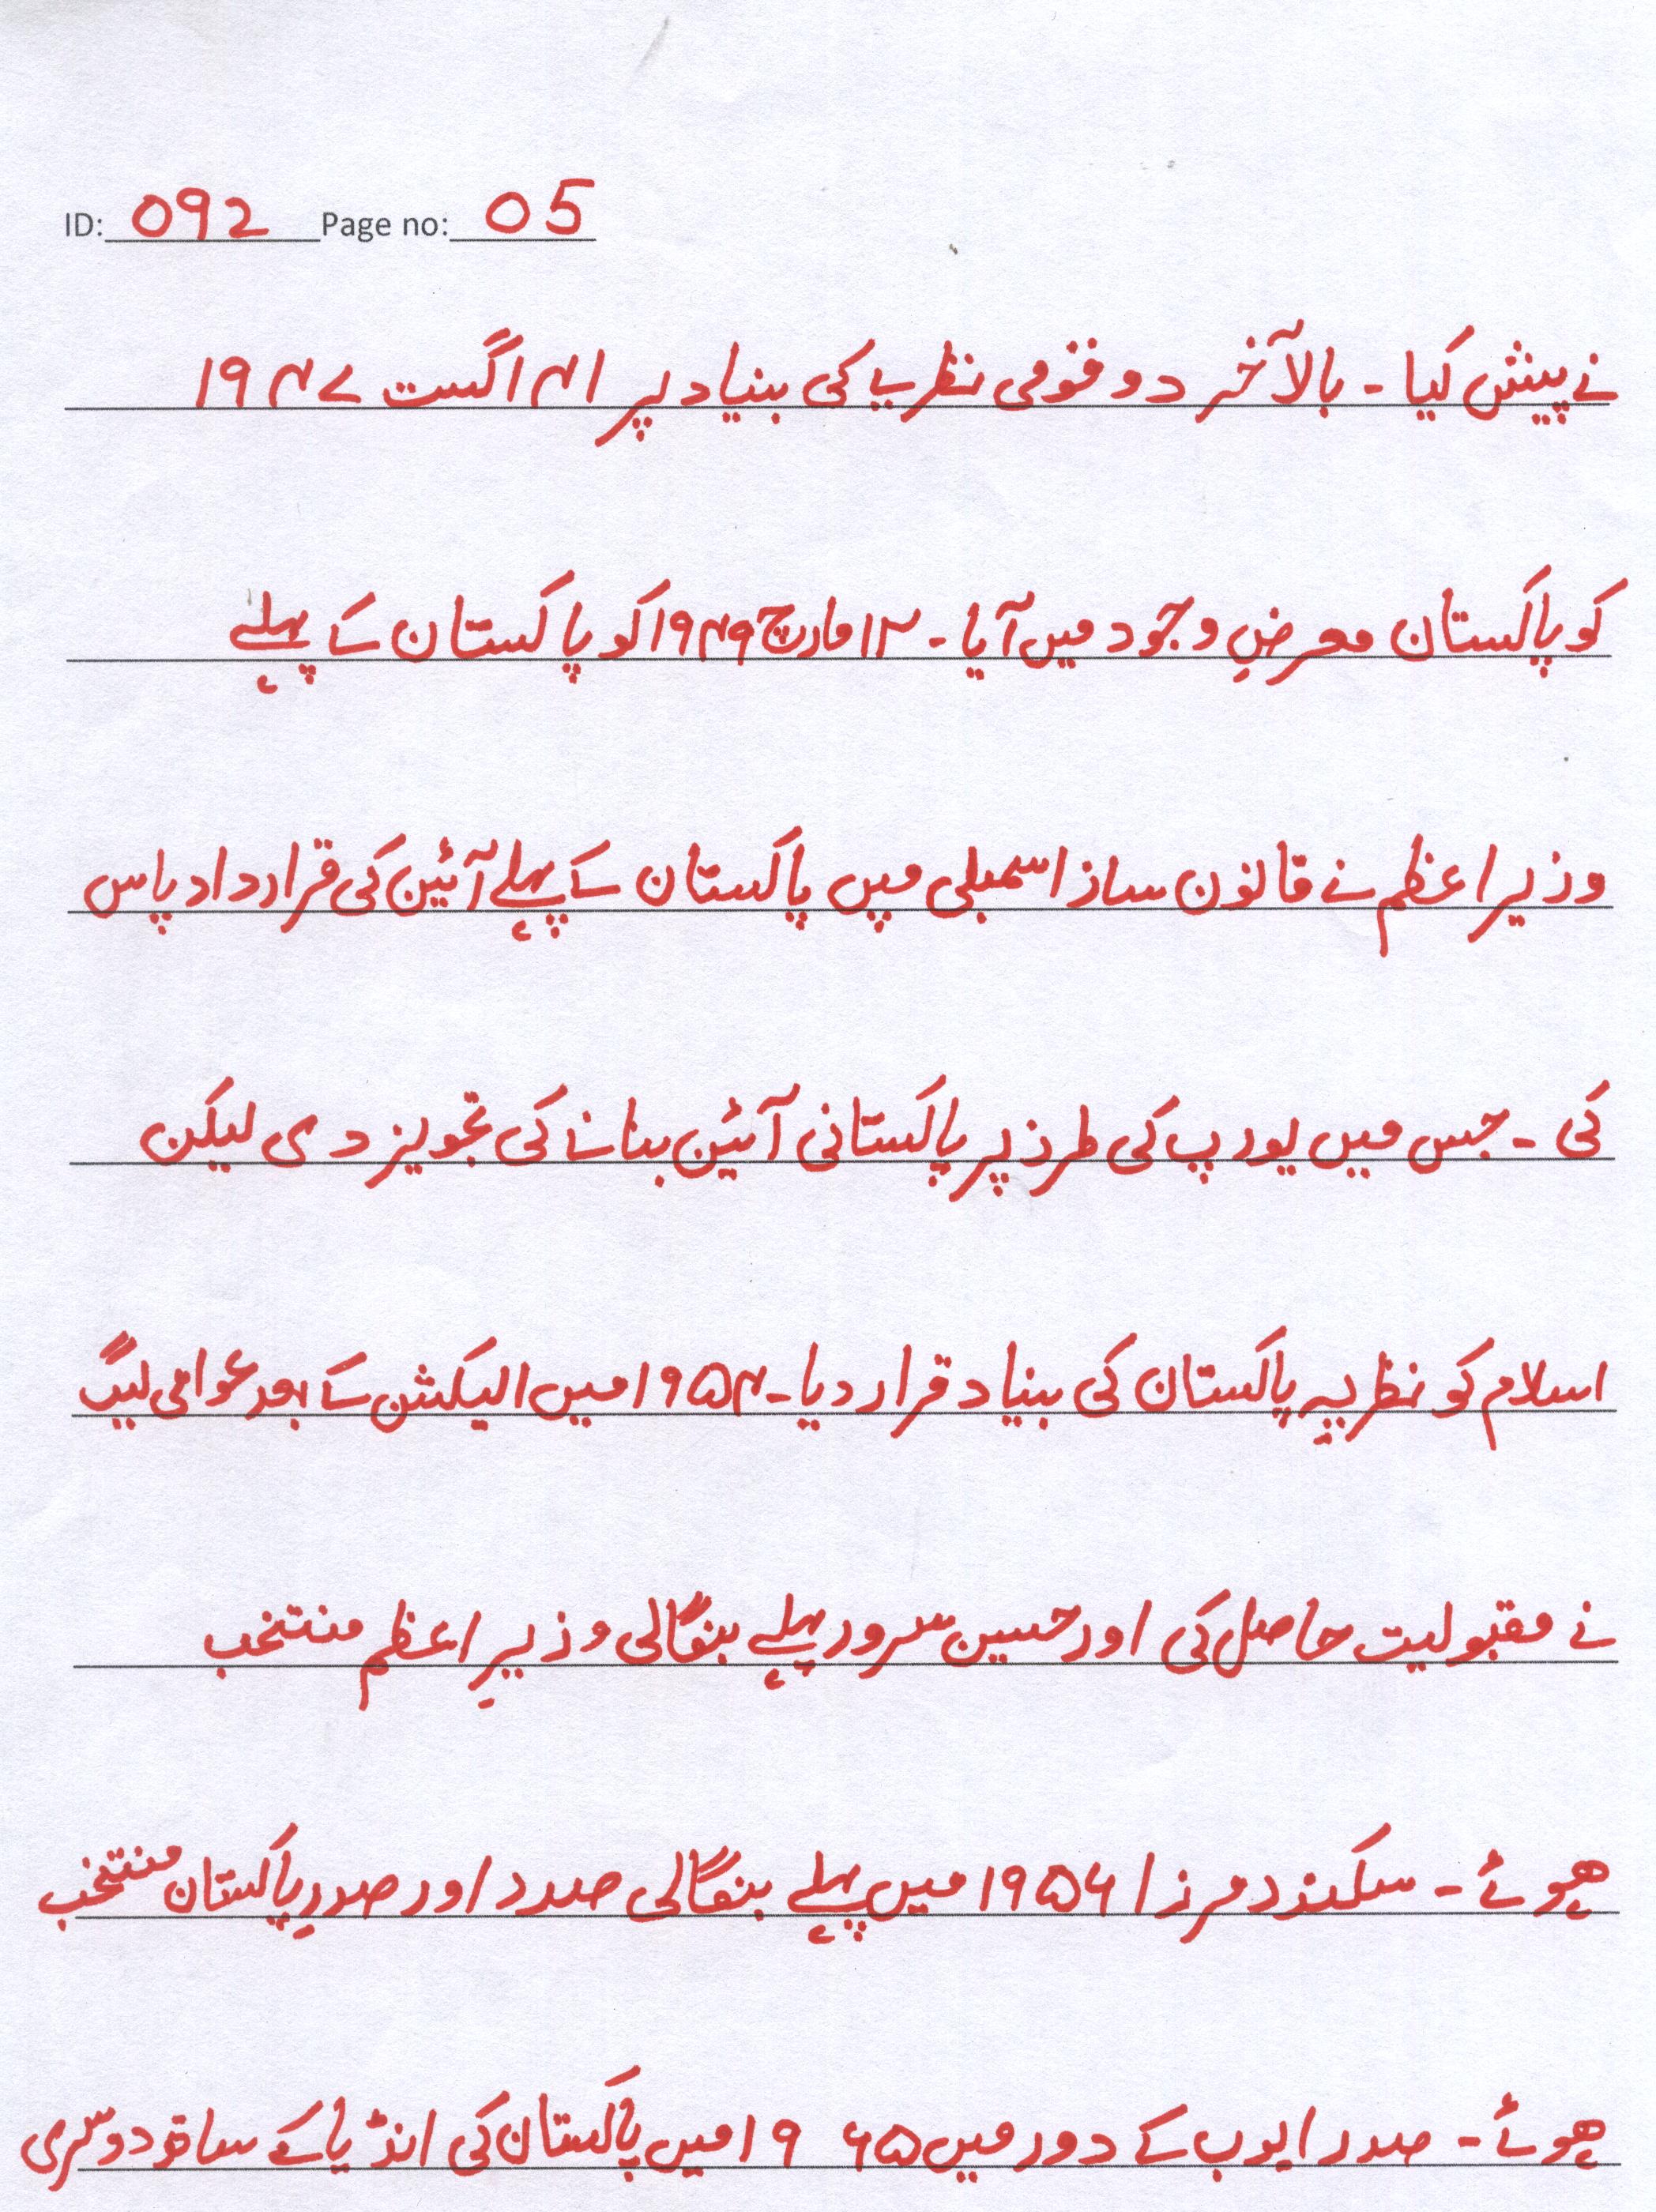 ID: 092 Page no: 05
نے پیش کیا۔ بالآخر دو قومی نظریے کی بنیاد پر ۱۴ اگست ۱۹۴۷
کو پاکستان معرضِ وجود میں آیا۔ ۱۲ مارچ ۱۹۴۹ کو پاکستان کے پہلے
وزیراعظم نے قانون ساز اسمبلی میں پاکستان کے پہلے آئین کی قرارداد پاس
کی۔ جس میں یورپ کی طرز پر پاکستانی آئین بنانے کی تجویز دی لیکن
اسلام کو نظریہ پاکستان کی بنیاد قرار دیا۔ ۱۹۵۴ میں الیکشن کے بعد عوامی لیگ
نے مقبولیت حاصل کی اور حسین سرور پہلے بنگالی وزیرِ اعظم منتخب
ہوئے۔ سکندر مرزا ۱۹۵۶ میں پہلے بنگالی صدر اور صدرِ پاکستان منتخب
ہوئے۔ صدر ایوب کے دور میں ۱۹۶۵ میں پاکستان کی انڈیا کے ساتھ دوسری